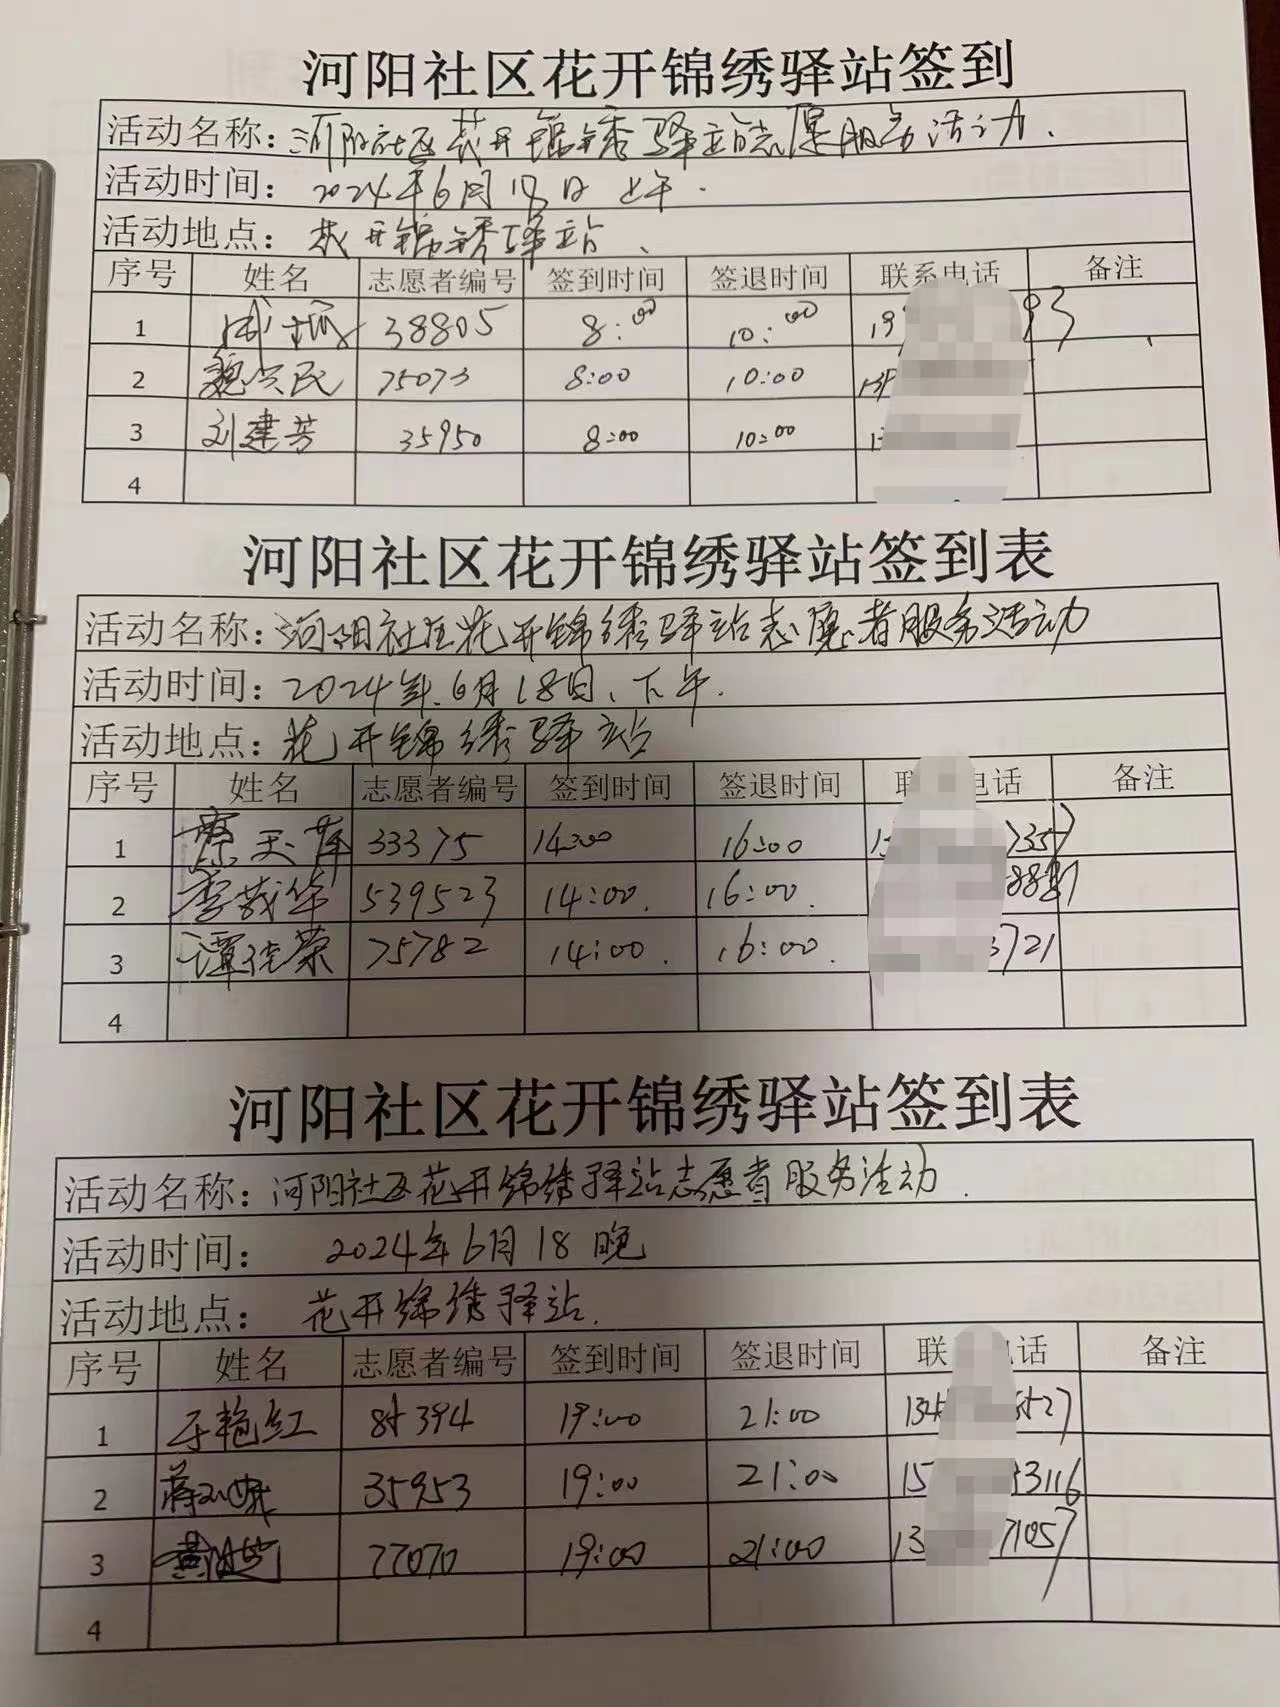 河阳社区花开锦绣驿站签到
活动名称：河阳社区花开锦绣驿站志愿服务活动．
活动时间：2024年6月18日 上午．
活动地点：花开锦绣驿站、
序号 姓名 志愿者编号 签到时间 签退时间 联系电话 备注
1 38805 8:00 10:00 93
2 魏兴民 75073 8:00 10:00
3 刘建芳 35950 8:00 10:00
4
河阳社区花开锦绣驿站签到表
活动名称：河阳社区花开锦绣驿站志愿者服务活动
活动时间：2024年.6月18日、下午．
活动地点：花开锦绣驿站
序号 姓名 志愿者编号 签到时间 签退时间 联 电话 备注
1 33375 14:00 16:00 7357
2 539523 14:00. 16:00. 8881
3 75782 14:00. 16:00. 3721
4
河阳社区花开锦绣驿站签到表
活动名称：河阳社区花开锦绣驿站志愿者服务活动．
活动时间：2024年6月18晚
活动地点：花开锦绣驿站．
序号 姓名 志愿者编号 签到时间 签退时间 联 话 备注
1 于艳红 85394 19:00 21:00 134 527
2 35953 19:00 21:00 15 3116
3 77070 19:00 21:00 13 71057
4